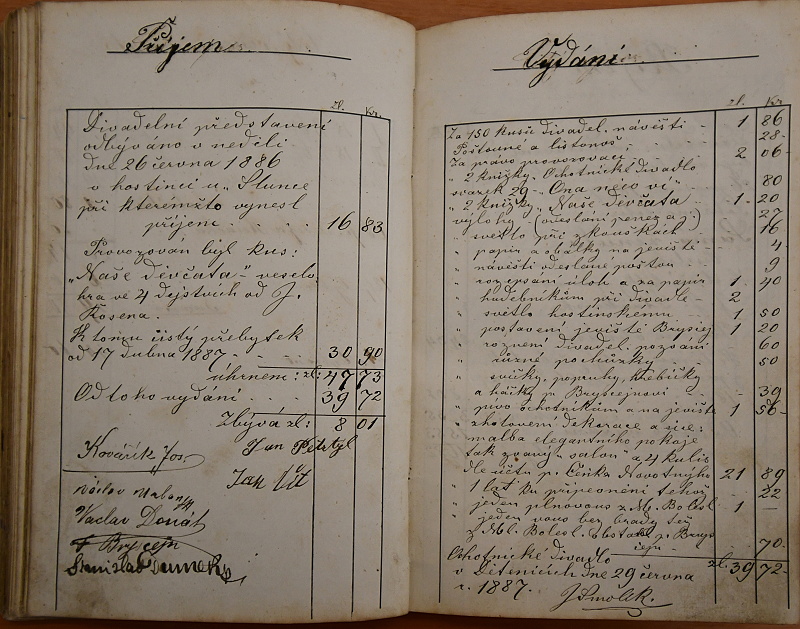 Příjem
zl. Kr.
Divadelní představení
odbýváno v neděli
dne 26 června 1886
v hostinci u „Slunce
při kterémžto vynesl
příjem . . . . 16 83
Provozován byl kus:
„Naše děvčata" veselo
hra ve 4 dějstvích od J.
Kosena.
K tomu čistý přebytek
od 17 dubna 1887 - - - 30 90
Úhrnem: zl: 47 73
Od toho vydání . . . 39 72
Zbývá zl: 8 01
Kovářík Jos.
Jan Petrtyl
Jan Vít
Václav Urban
Vaclav Donát
F Brycejn
Stanislav
Vydání
zl. Kr.
Za 150 kusů divadel. návěští - 1 86
Poštovné a listonoš - 28-
Za právo provozovací, 2 06-
„ 2 knížky, Ochotnické divadlo
svazek 29 - „Ona něco ví" 80
„ 2 knížky „Naše děvčata 1- 20
výlohy - (odeslaní peněz a j.) 27
„ světlo při zkouškách - 16
„ papír a obálky na jeviště - 4
„ návěští odeslané poštou - 9
„ rozepsání úloh a za papír 1 40
„ hudebníkům při divadle - 2
„ světlo hostinskému - 1 50
„ postavení jeviště Brycej 1 20
„ roznení divadel. pozvání 60
„ různé pochůzky - 50
„ svíčky, popruhy, hřebíčky
a háčky p. Brycejnovi - 39
„ pivo ochotníkům a na jeviště 1 56-
„ zhotovení dekorace a sice:
malba elegantního pokoje
tak zvaný „salon" a 4 kulis
dle účtu p. Čeňka Novotnýho 21 89
„ 1 lať ku připevnění téhož - 22
„ jeden plnovous z Ml. Bolesl. 1 —
„ jeden vous bez brady též
z Ml. Bolesl. obstaral p. Bryc
ejn - 70-
Ochotnické divadlo zl. 39 72-
v Dětenicích dne 29 června
r. 1887.
J Smolík.